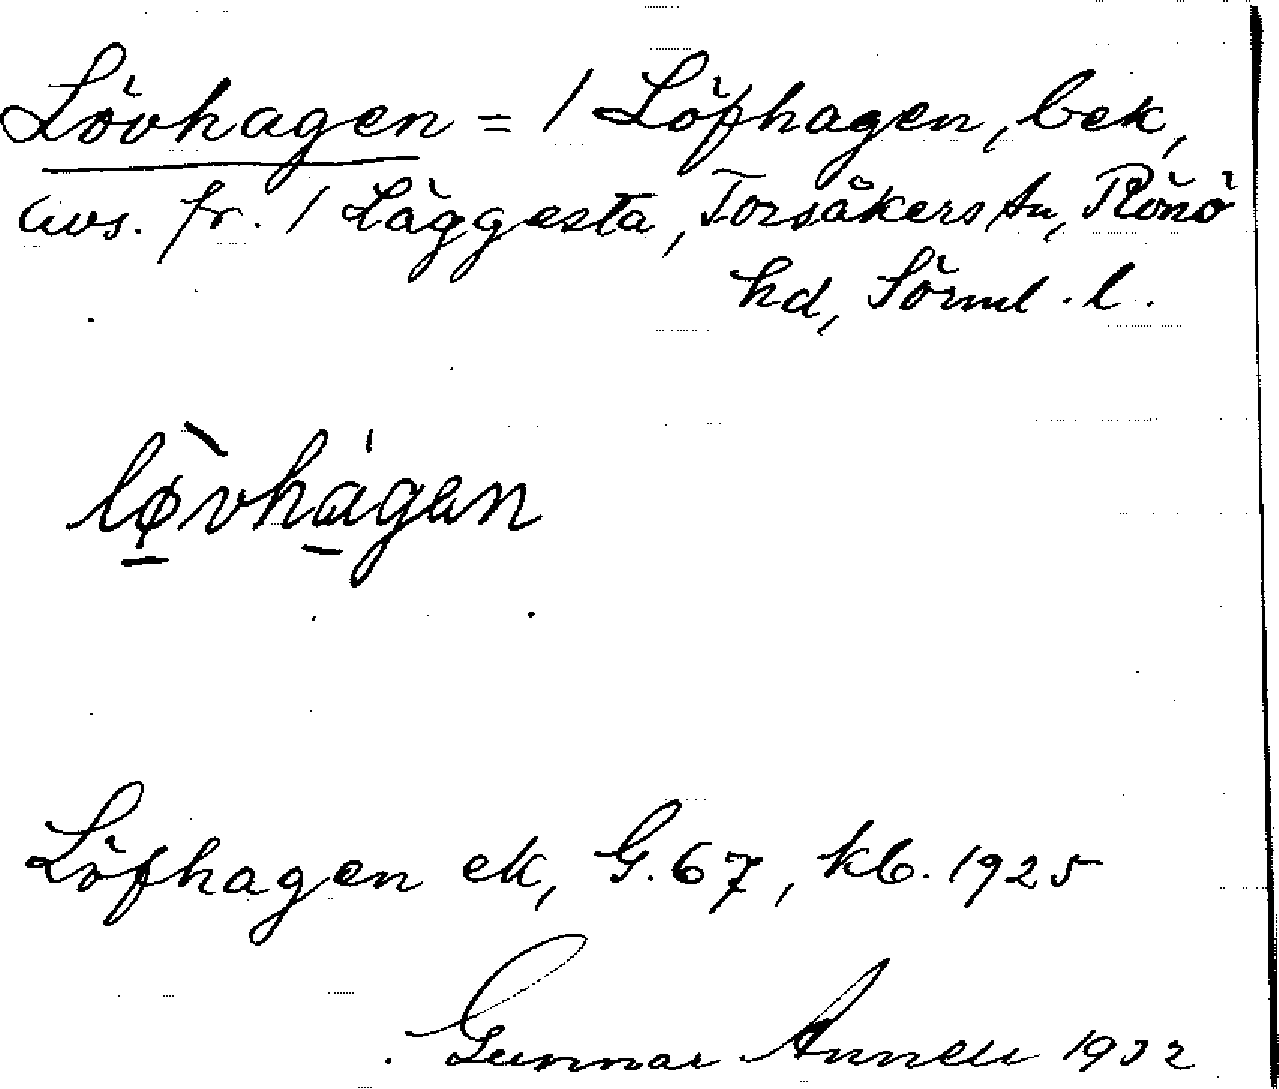 Lövhagen = / Löfhagen, bek,
avs. fr. / Läggesta, Torsåkers sn, Rönö
hd, Sörml. l.
løvhagen
Löfhagen ek, G. 67, kb. 1925
Gunnar Annell 1932